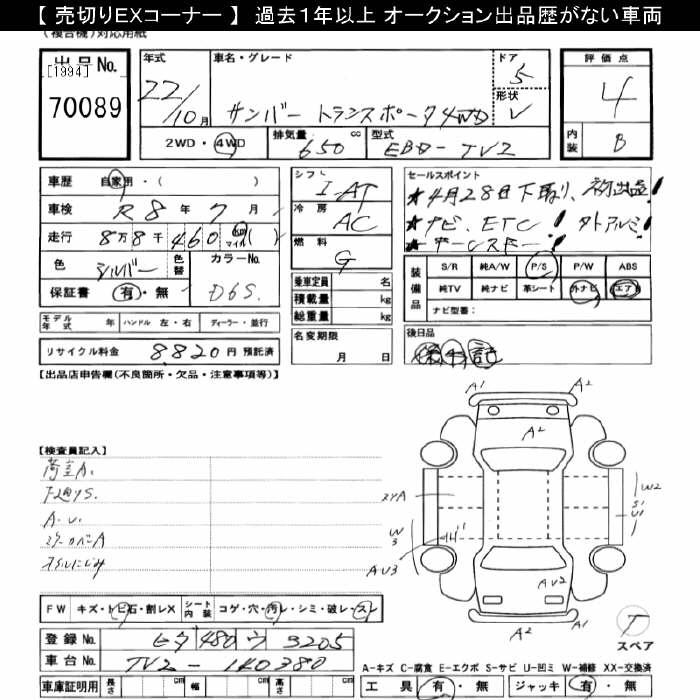 【 売切りEXコーナー 】 過去1年以上 オークション出品歴がない車両
(複合機)対応用紙
出品No.
[1994]
70089
年式
22/10月
車名・グレード
サンバー トランスポータ4WD
ドア
5
形状
V
評価点
4
内装
B
2WD・4WD
排気量
650
cc
型式
EBD-TV2
車歴 自家用・( )
車検 R8年7月
走行 8万8千460 km マイル( )
色 シルバー 色替
カラーNo.
D6S
保証書 有・無
シフト
I-AT
冷房
AC
燃料
G
乗車定員 名
積載量 kg
総重量 kg
セールスポイント
★4月28日下取り、初出品!
★ナビ、ETC! 外アルミ!
装備品
S/R 純A/W P/S P/W ABS
純TV 純ナビ 革シート 外ナビ エアB
ナビ型番:
モデル年式 年 ハンドル 左・右 ディーラー・並行
リサイクル料金 8,820円 預託済
名変期限
月 日
後日品
【出品店申告欄(不良箇所・欠品・注意事項等)】
【検査員記入】
A1 A2
A2
W2
S1
U1
W3
AU3
AU2
A2 A1
T
スペア
FW キズ・トビ石・割レX シート内装 コゲ・穴・汚レ・シミ・破レ・スレ
登録No. 480 ウ 3205
車台No. TV2-140380
車庫証明用 長さ cm 幅 cm 高さ cm
A-キズ C-腐食 E-エクボ S-サビ U-凹ミ W-補修 XX-交換済
工具 有・無 ジャッキ 有・無